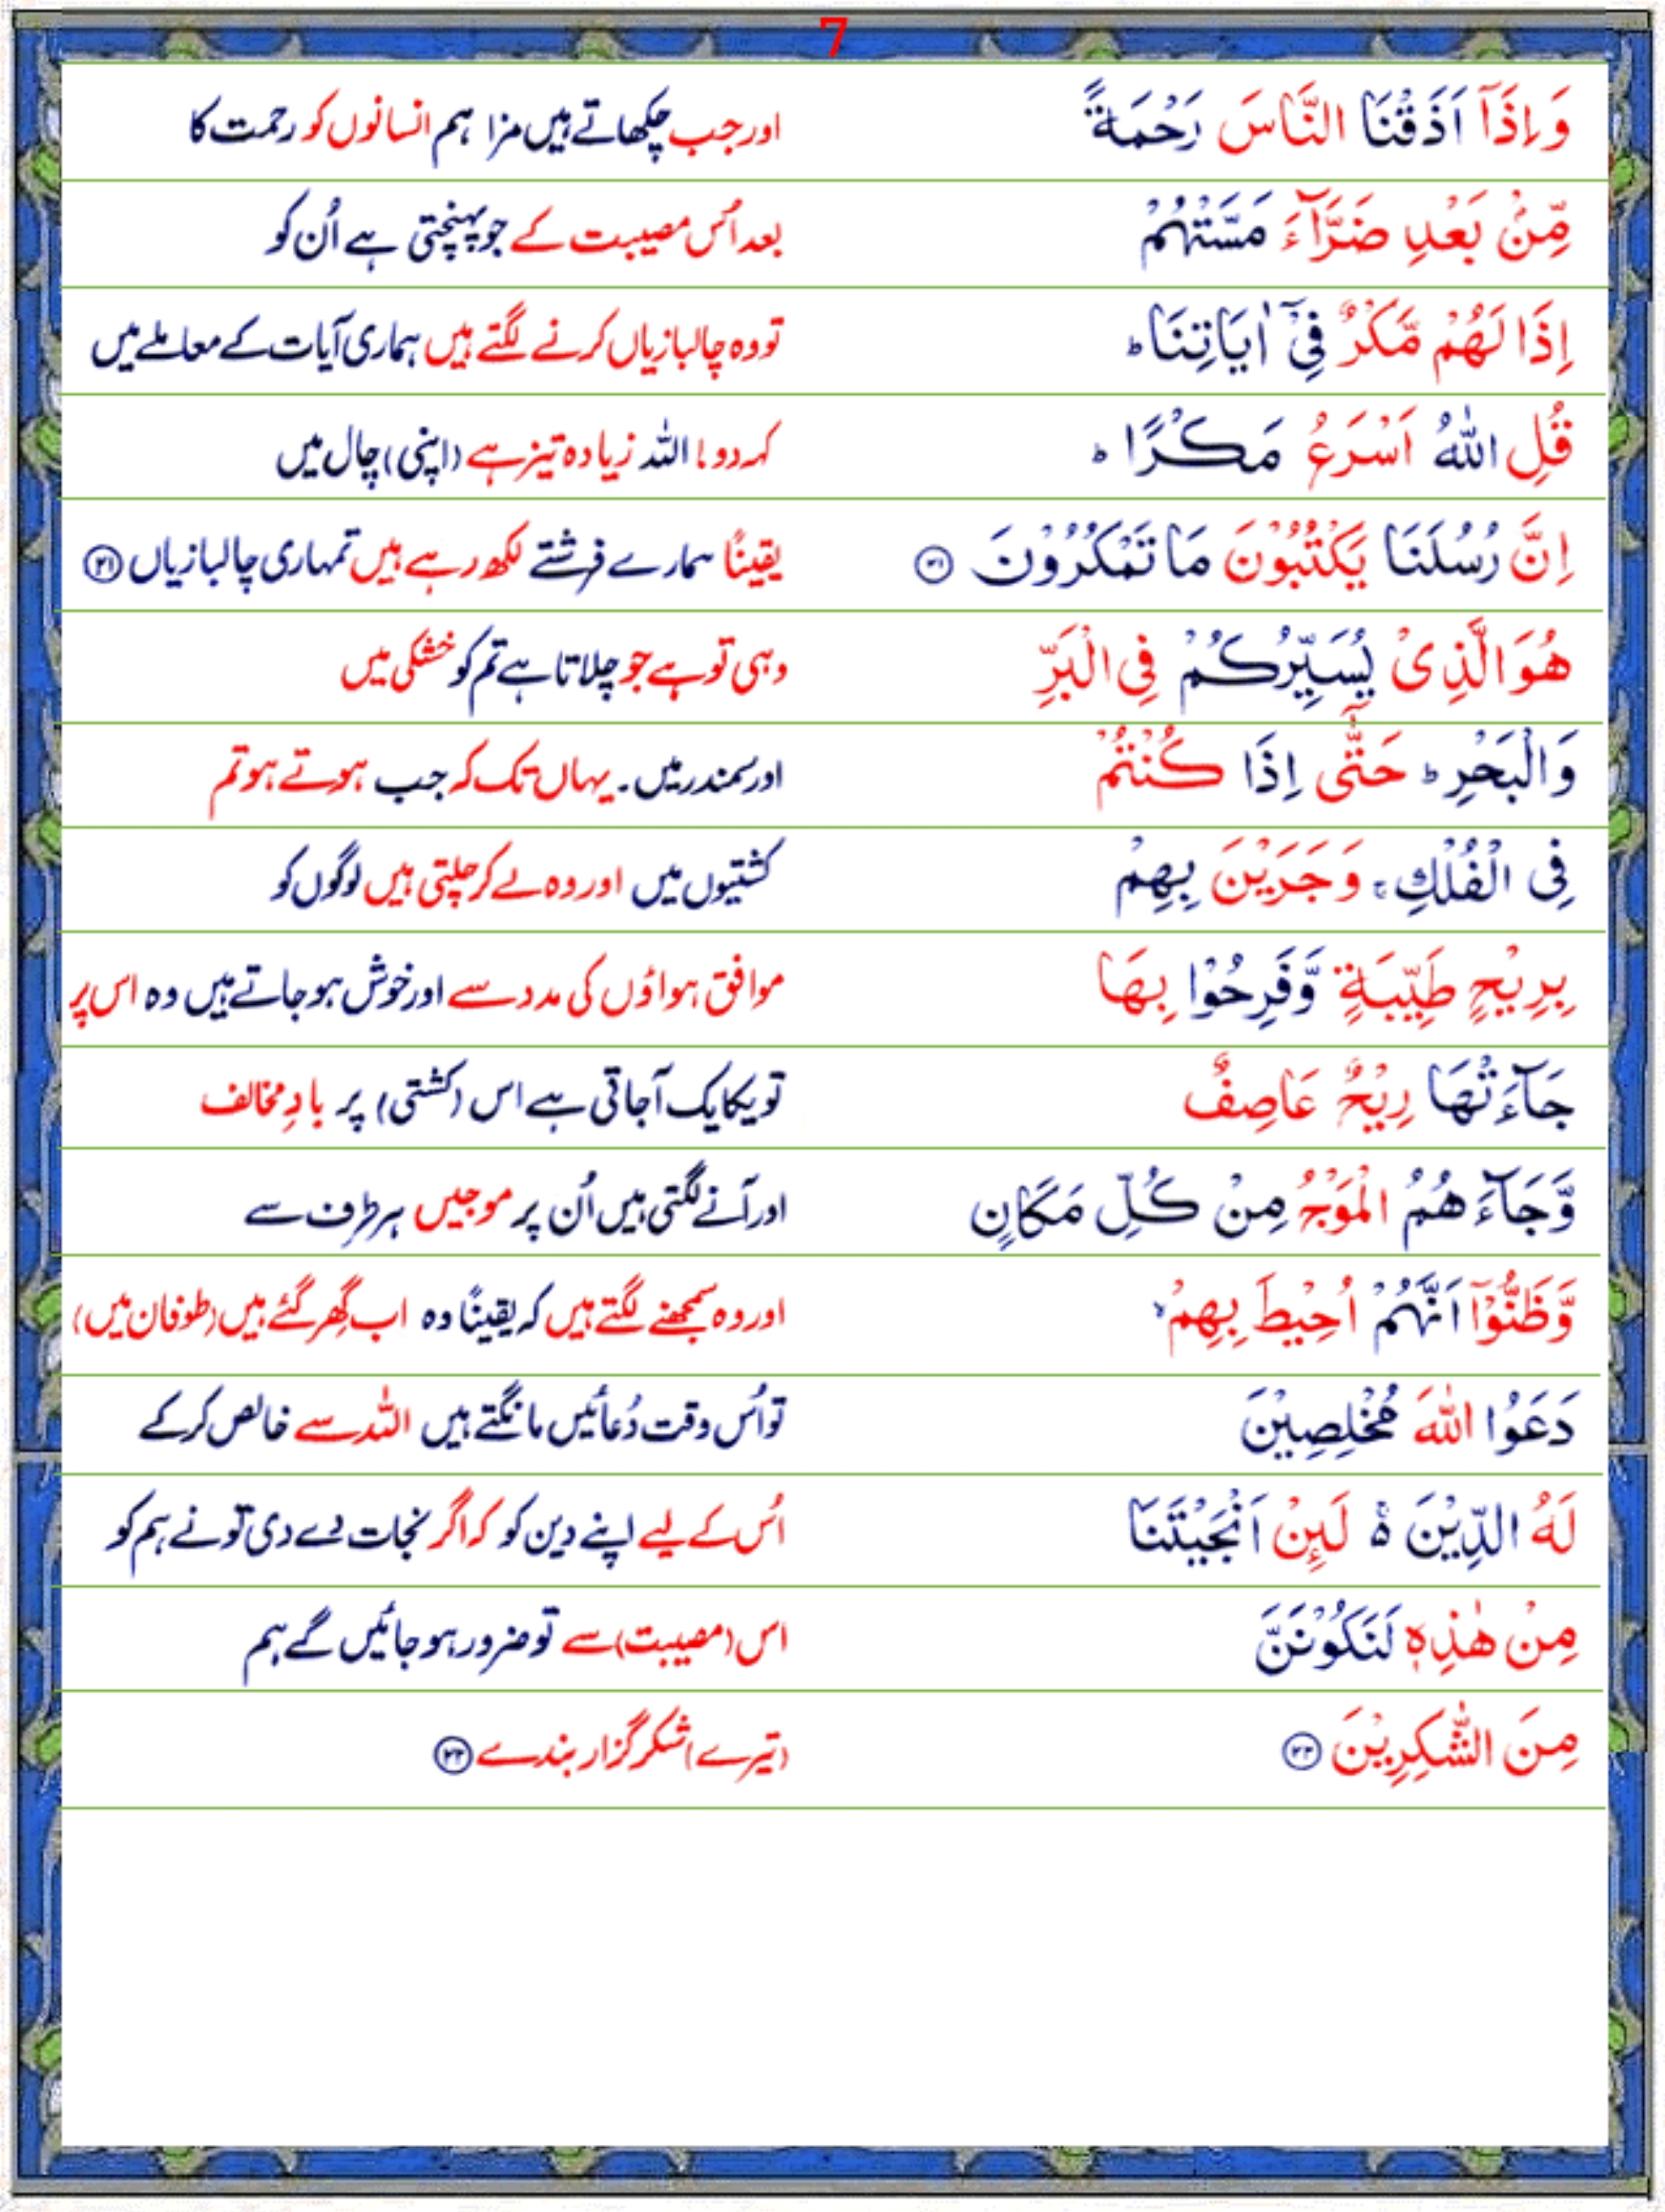 7
وَاِذَاۤ اَذَقْنَا النَّاسَ رَحْمَةً اور جب چکھاتے ہیں مزا ہم انسانوں کو رحمت کا
مِّنْۢ بَعْدِ ضَرَّآءَ مَسَّتْهُمْ بعد اُس مصیبت کے جو پہنچتی ہے اُن کو
اِذَا لَهُمْ مَّكْرٌ فِیْۤ اٰیَاتِنَا ؕ تو وہ چالبازیاں کرنے لگتے ہیں ہماری آیات کے معاملے میں
قُلِ اللّٰهُ اَسْرَعُ مَكْرًا ؕ کہہ دو! اللہ زیادہ تیز ہے (اپنی) چال میں
اِنَّ رُسُلَنَا یَكْتُبُوْنَ مَا تَمْكُرُوْنَ ﴿۲۱﴾ یقیناً ہمارے فرشتے لکھ رہے ہیں تمہاری چالبازیاں ﴿۲۱﴾
هُوَ الَّذِیْ یُسَیِّرُكُمْ فِی الْبَرِّ وہی تو ہے جو چلاتا ہے تم کو خشکی میں
وَالْبَحْرِ ؕ حَتّٰۤی اِذَا كُنْتُمْ اور سمندر میں۔ یہاں تک کہ جب ہوتے ہو تم
فِی الْفُلْكِ ۚ وَجَرَیْنَ بِهِمْ کشتیوں میں اور وہ لے کر چلتی ہیں لوگوں کو
بِرِیْحٍ طَیِّبَةٍ وَّفَرِحُوْا بِهَا موافق ہواؤں کی مدد سے اور خوش ہو جاتے ہیں وہ اس پر
جَآءَتْهَا رِیْحٌ عَاصِفٌ تو یکایک آجاتی ہے اس (کشتی) پر بادِ مخالف
وَّجَآءَهُمُ الْمَوْجُ مِنْ كُلِّ مَكَانٍ اور آنے لگتی ہیں اُن پر موجیں ہر طرف سے
وَّظَنُّوْۤا اَنَّهُمْ اُحِیْطَ بِهِمْ ۙ اور وہ سمجھنے لگتے ہیں کہ یقیناً وہ اب گھر گئے ہیں (طوفان میں)
دَعَوُا اللّٰهَ مُخْلِصِیْنَ تو اُس وقت دُعائیں مانگتے ہیں اللہ سے خالص کرکے
لَهُ الدِّیْنَ ۚ۬ لَىِٕنْ اَنْجَیْتَنَا اُس کے لیے اپنے دین کو کہ اگر نجات دے دی تو نے ہم کو
مِنْ هٰذِهٖ لَنَكُوْنَنَّ اس (مصیبت) سے تو ضرور ہو جائیں گے ہم
مِنَ الشّٰكِرِیْنَ ﴿۲۲﴾ (تیرے) شکر گزار بندے ﴿۲۲﴾